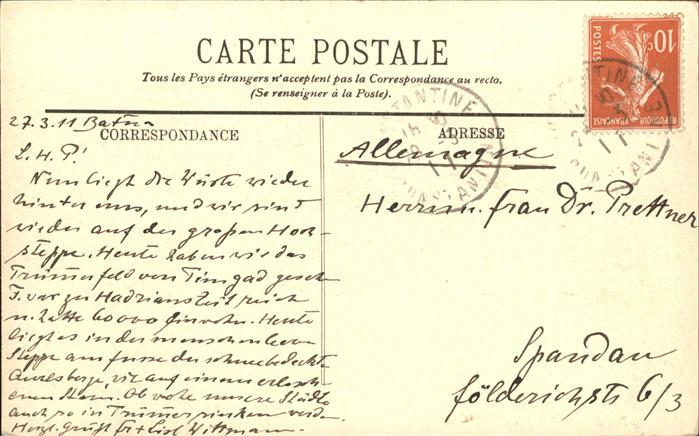 CARTE POSTALE
Tous les Pays étrangers n'acceptent pas la Correspondance au recto.
(Se renseigner à la Poste).
27.3.11 Batna
CORRESPONDANCE
L. H. P!
Nun liegt die Wüste wieder
hinter uns, und wir sind
wieder auf der großen Hoch-
steppe. Heute haben wir das
Trümmerfeld von Timgad gesehn
T. war zu Hadrians Zeit reich
u. hatte 60000 Einwohn. Heute
liegt es in der menschenleeren
Steppe am Fusse der schneebedeckten
Auresberge, wie auf einem erlosch
enen Stern. Ob wohl unsere Städte
auch so in Trümmer sinken werden
Herzl. Grüße Fr + Lisl Wittmann.
ADRESSE
Allemagne
Herrn u. Frau Dr. Prettner
Spandau
Földerichstr 6/3
10c
POSTES
REPUBLIQUE FRANÇAISE
CONSTANTINE
CONSTANTINE